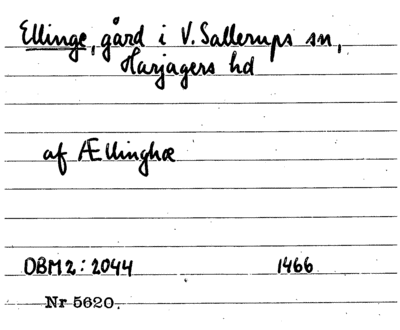 Ellinge, gård i V. Sallerups sn,
Harjagers hd
af Ællinghæ
DBM2: 2044 1466
Nr 5620.